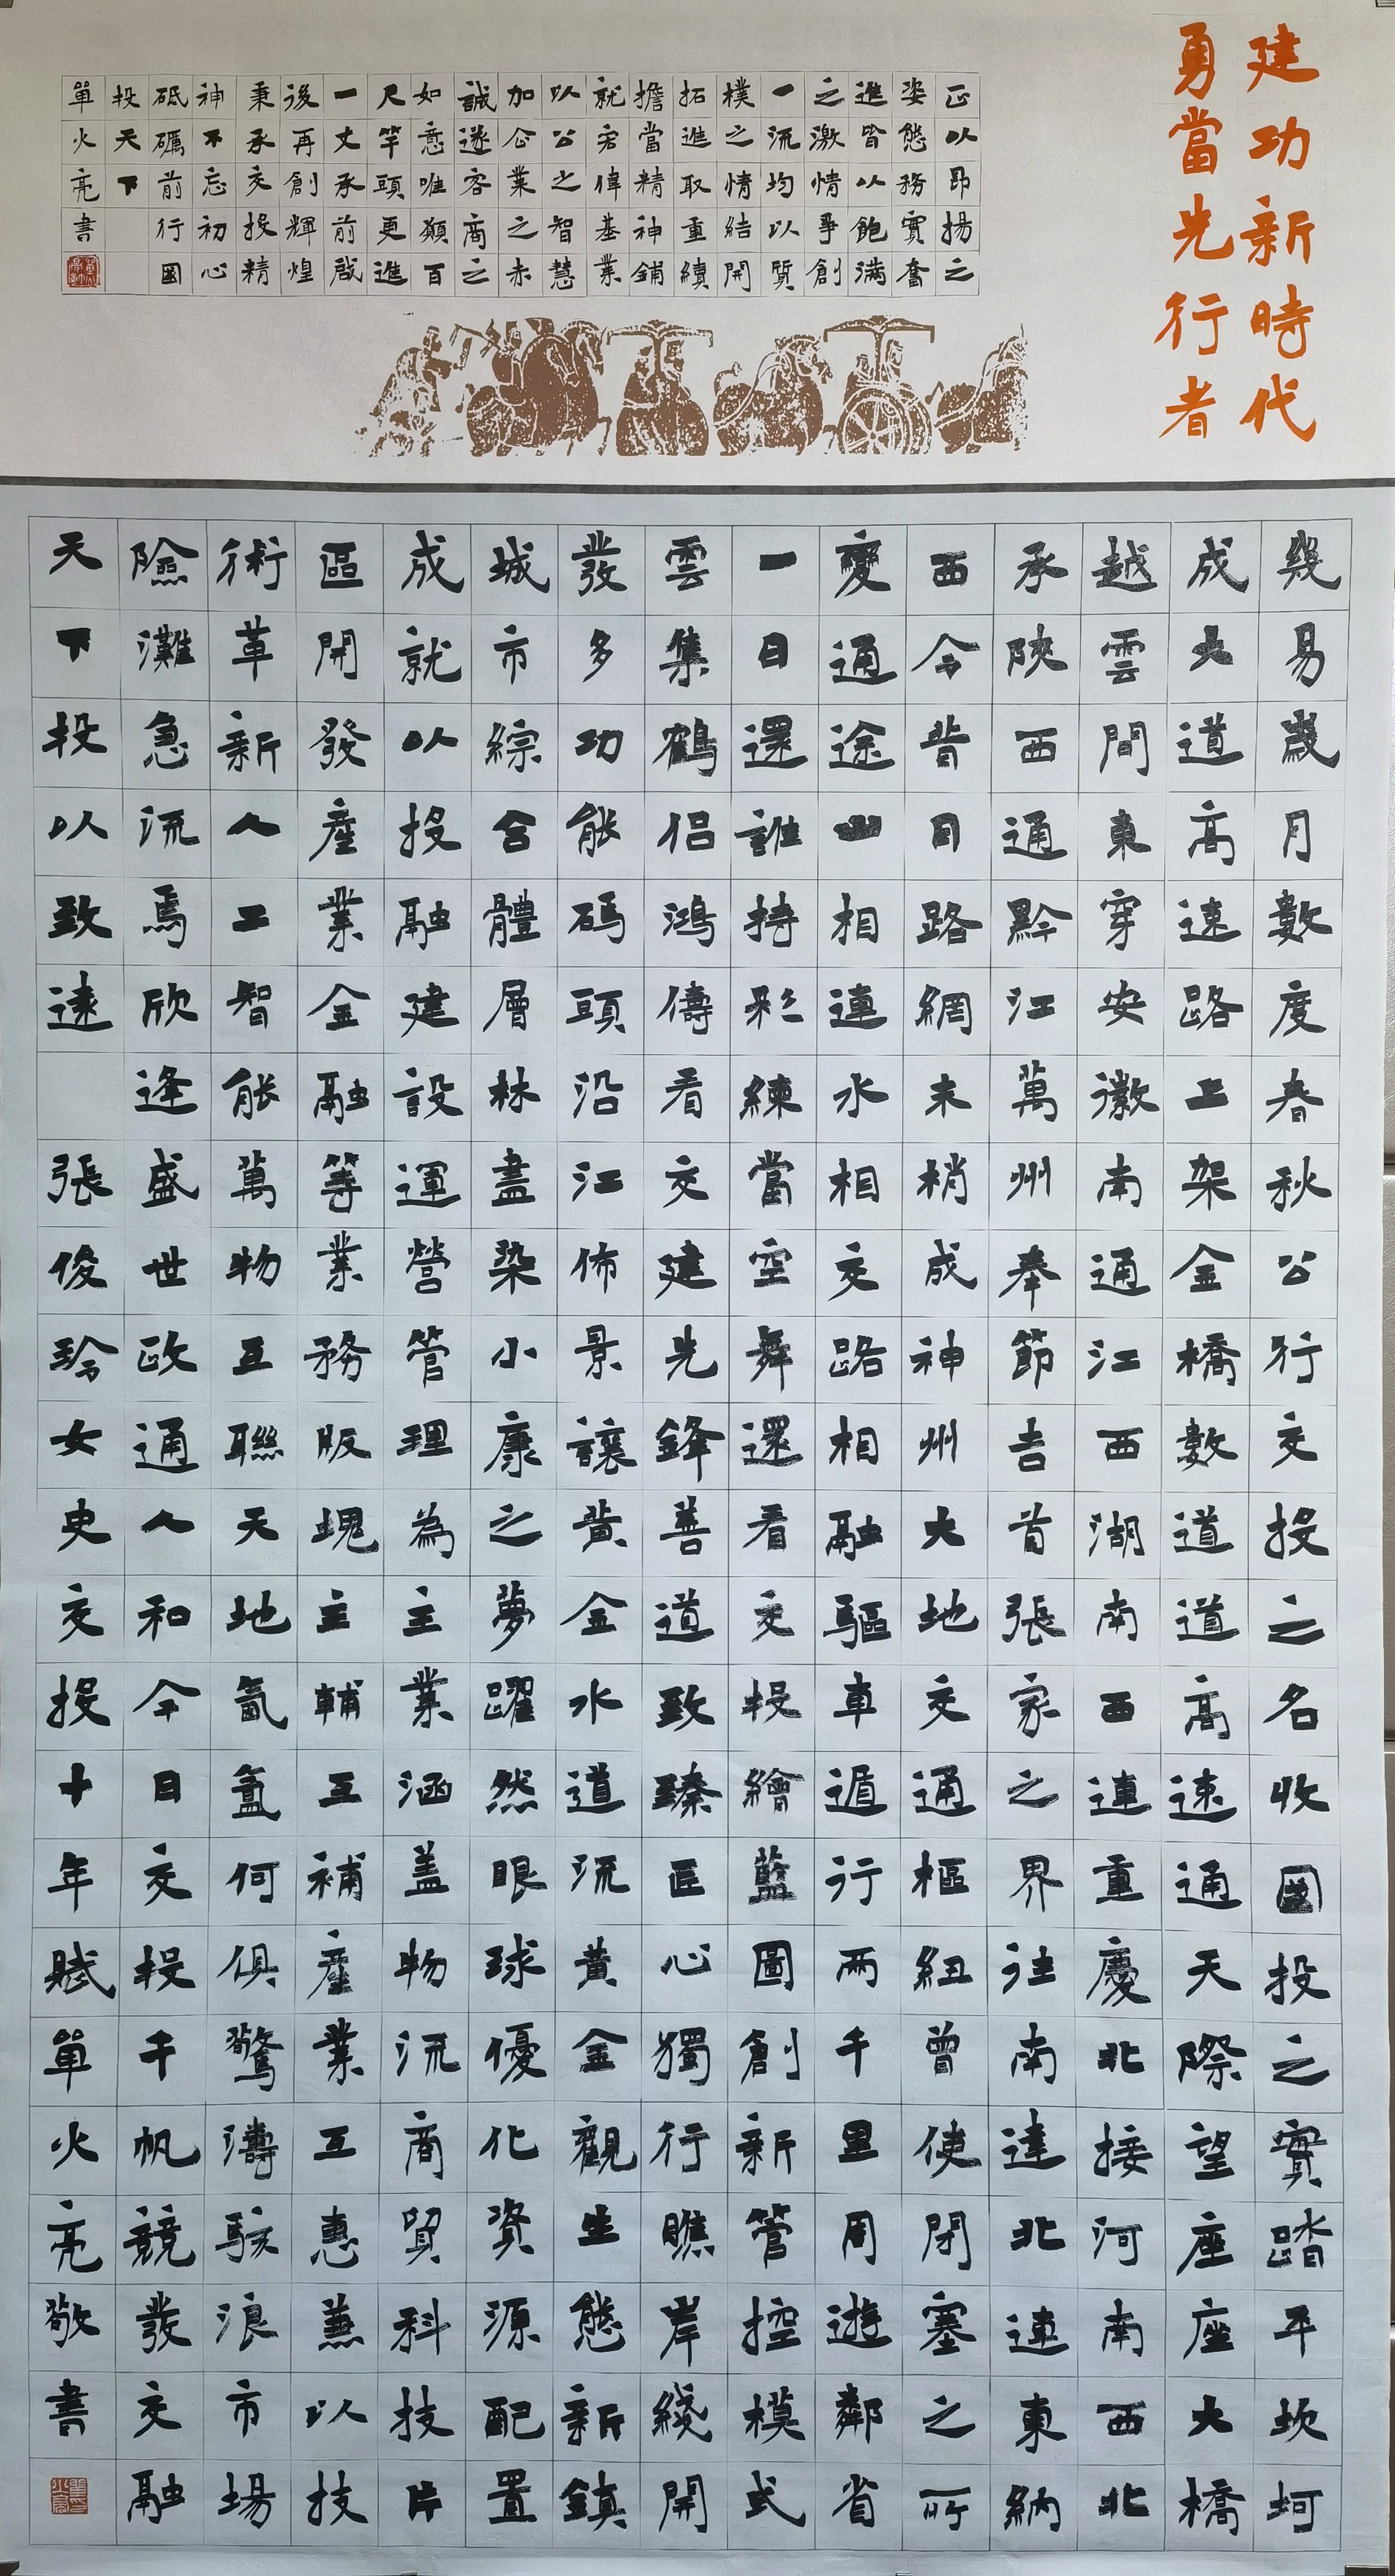 建功新時代
勇當先行者
正以昂揚之
姿態務實奮
進皆以飽滿
之激情爭創
一流均以質
樸之情結開
拓進取重續
擔當精神鋪
就宏偉基業
以公之智慧
加企業之赤
誠遂容商之
如意唯願百
尺竿頭更進
一丈承前啟
後再創輝煌
秉承交投精
神不忘初心
砥礪前行國
投天下
單火亮書
幾易歲月數度春秋公行交投之名收國投之實踏平坎坷
成大道高速路上架金橋數道道高速通天際望座座大橋
越雲間東穿安徽南通江西湖南西連重慶北接河南西北
承陝西通黔江萬州奉節吉首張家之界往南達北連東納
西令昔日路網末梢成神州大地交通樞紐曾使閉塞之所
變通途山相連水相交路相融驅車遁行兩千里周遊鄰省
一日還誰持彩練當空舞還看交投繪藍圖創新管控模式
雲集鶴侣鴻儔看交建先鋒善道致臻匠心獨行瞧岸綫開
發多功能碼頭沿江佈景讓黃金水道流黃金觀生態新鎮
城市綜合體層林盡染小康之夢躍然眼球優化資源配置
成就以投融建設運營管理為主業涵盖物流商貿科技片
區開發產業金融等業務版塊主輔互補產業互惠兼以技
術革新人工智能萬物互聯天地氤氳何俱驚濤駭浪市場
險灘急流焉欣逢盛世政通人和今日交投千帆競發交融
天下投以致遠 張俊玲女史交投十年賦單火亮敬書